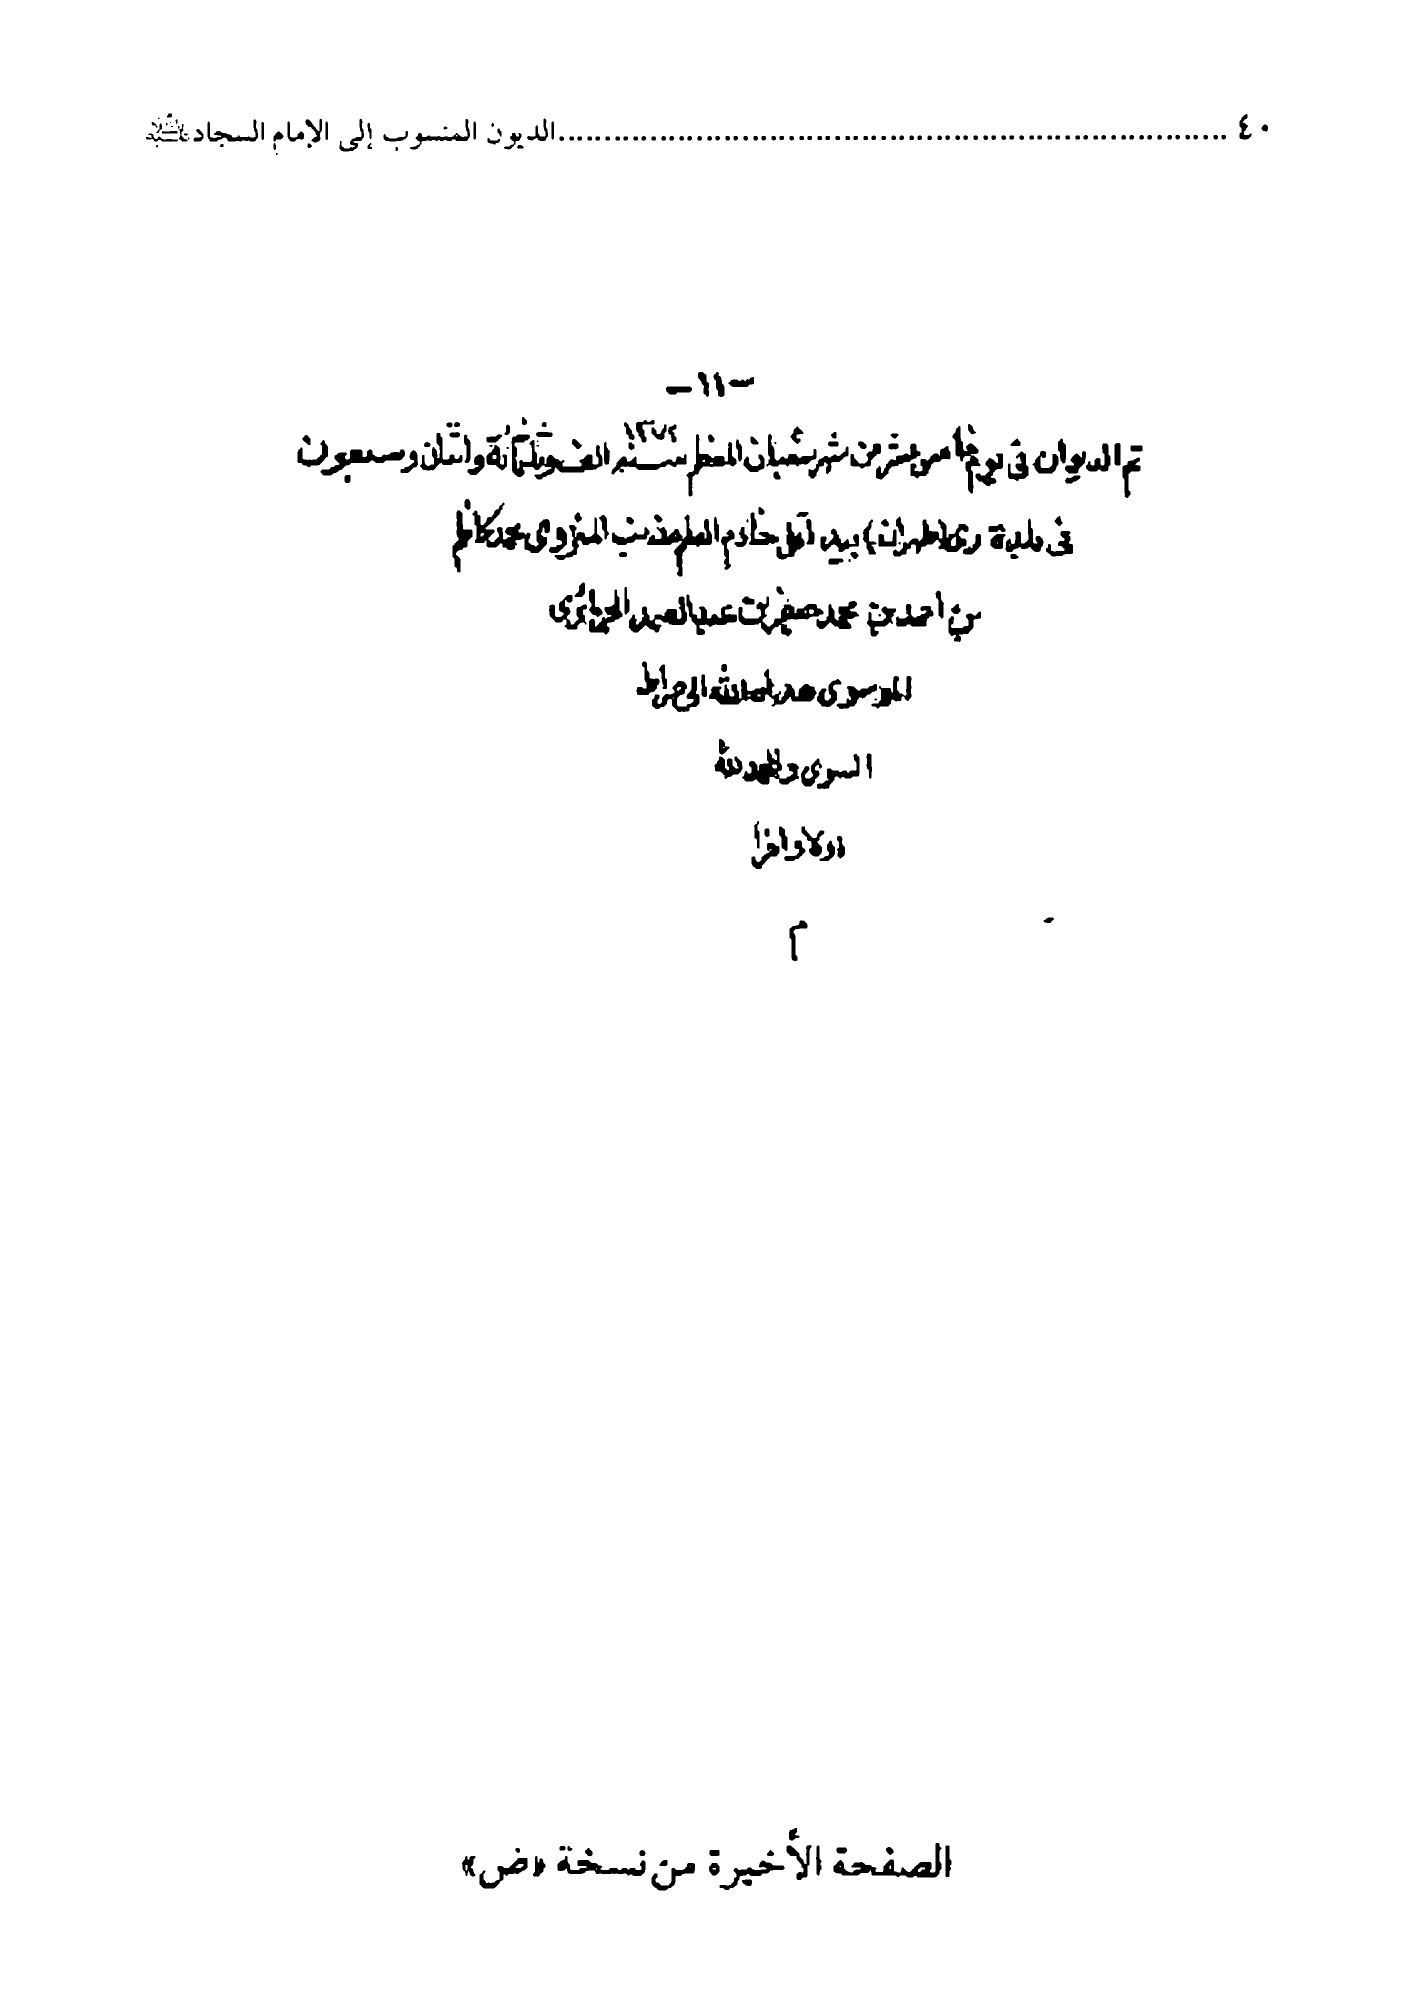 ٤٠ ........................................................................ الديون المنسوب إلى الإمام السجاد عليه السلام
- ١١ -
تم الديوان فى يوم خامس عشر من شهر شعبان المعظم سنه ١٣٧٢ الف وثلثمائة واثنان وسبعون
فى بلدة رى (طهران) بيد اقل خادم العلم مذنب المنزوى محمد كاظم
بن احمد بن محمد جعفر بن عبد الصمد الجزائرى
الموسوى هداه الله الى صراط
السوى والحمد لله
اولا واخرا
م
الصفحة الأخيرة من نسخة «ض»